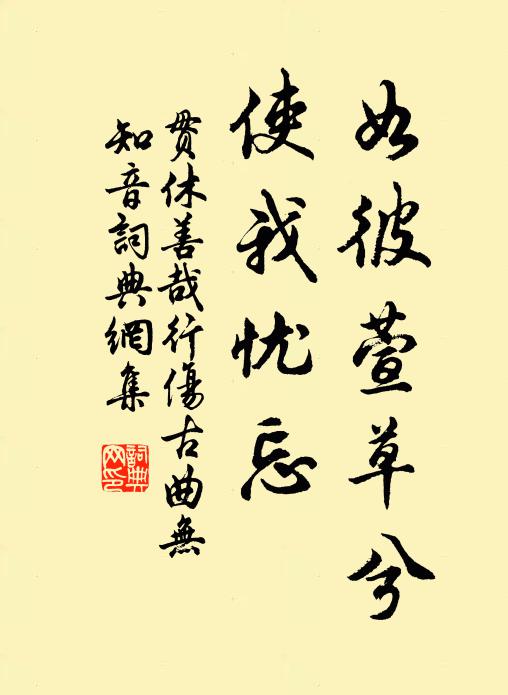 如彼萱草兮
使我忧忘
贯休善哉行傷古曲無
知音詞典網集
詞典
网印